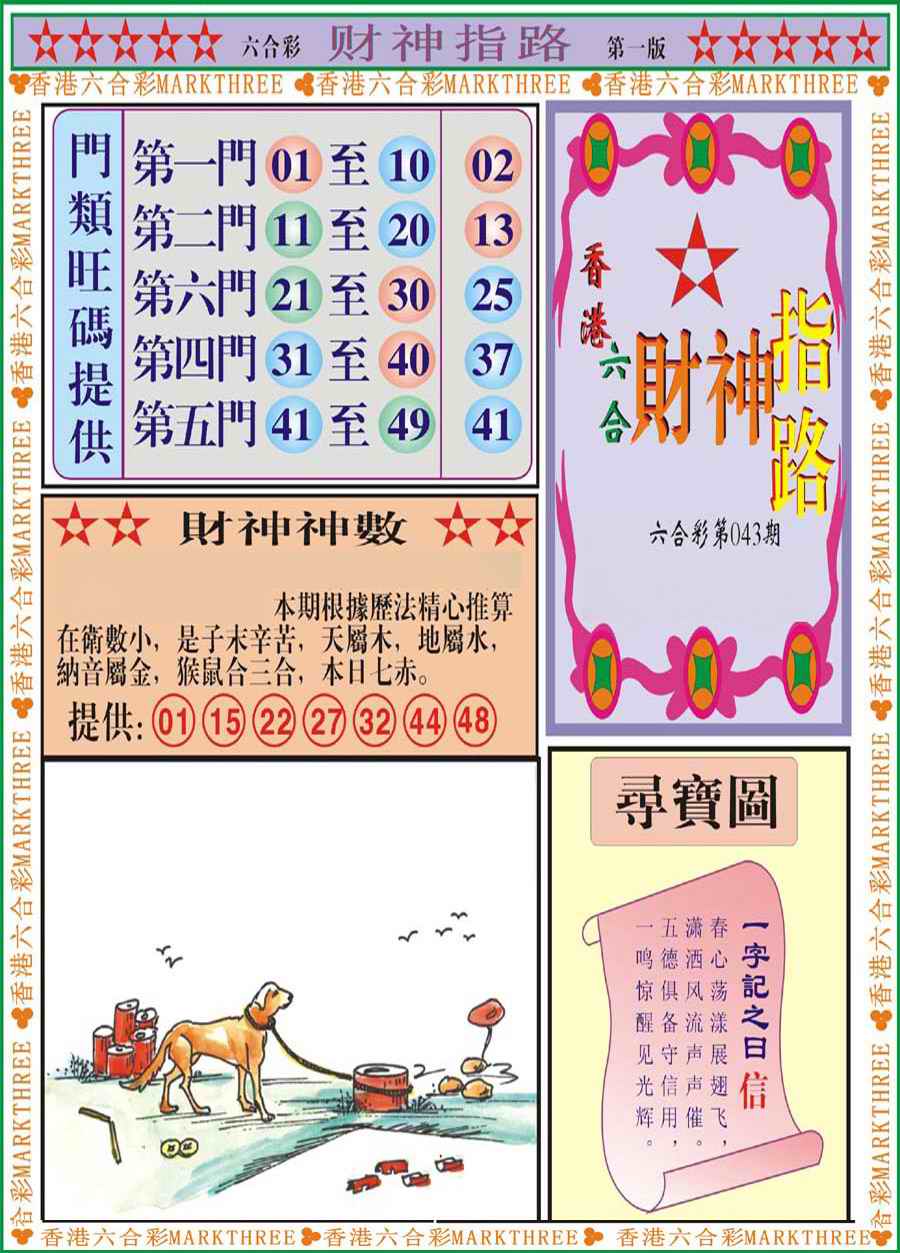 六合彩 财神指路 第一版
香港六合彩MARKTHREE 香港六合彩MARKTHREE 香港六合彩MARKTHREE
門類旺碼提供
第一門 01 至 10 02
第二門 11 至 20 13
第六門 21 至 30 25
第四門 31 至 40 37
第五門 41 至 49 41
香港六合
財神指路
六合彩第043期
財神神數
本期根據歷法精心推算
在衛數小，是子末辛苦，天屬木，地屬水，
納音屬金，猴鼠合三合，本日七赤。
提供: 01 15 22 27 32 44 48
尋寶圖
一字記之曰 信
春心荡漾展翅飞，
潇洒风流声声催。
五德俱备守信用，
一鸣惊醒见光辉。
香港六合彩MARKTHREE 香港六合彩MARKTHREE 香港六合彩MARKTHREE 合彩MARKTHREE
香港六合彩MARKTHREE 香港六合彩MARKTHREE 香港六合彩MARKTHREE 合彩MARKTHREE
香港六合彩MARKTHREE 香港六合彩MARKTHREE 香港六合彩MARKTHREE